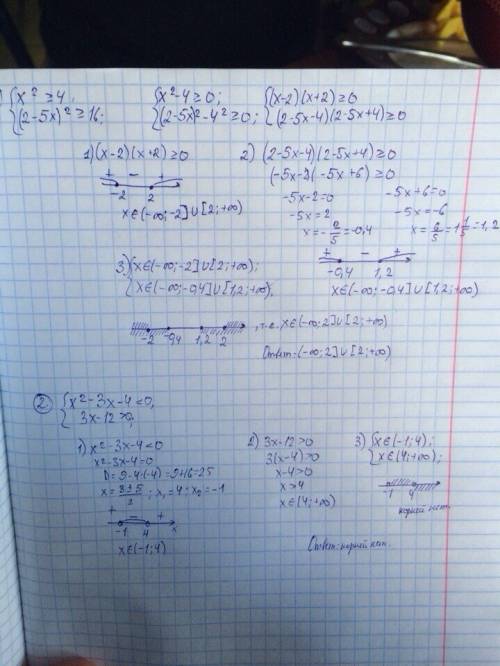 {x² ≥ 4, {x²-4 ≥ 0; {(x-2)(x+2) ≥ 0
{(2-5x)² ≥ 16; {(2-5x)²-4² ≥ 0; {(2-5x-4)(2-5x+4) ≥ 0
1) (x-2)(x+2) ≥ 0
+ - +
-2 2
x∈(-∞;-2]∪[2;+∞)
2) (2-5x-4)(2-5x+4) ≥ 0
(-5x-2)(-5x+6) ≥ 0
-5x-2=0 -5x+6=0
-5x=2 -5x=-6
x=-2/5=-0,4 x=6/5=1 1/5=1,2
+ - +
-0,4 1,2
x∈(-∞;-0,4]∪[1,2;+∞)
3) {x∈(-∞;-2]∪[2;+∞);
{x∈(-∞;-0,4]∪[1,2;+∞).
-2 -0,4 1,2 2 , т.е. x∈(-∞;2]∪[2;+∞)
Ответ: (-∞;2]∪[2;+∞)
2. {x²-3x-4<0,
{3x-12>0;
1) x²-3x-4<0
x²-3x-4=0
D=9-4·(-4)=9+16=25
x=3±5/2; x₁=4; x₂=-1
+ - +
-1 4 x
x∈(-1;4)
2) 3x-12>0
3(x-4)>0
x-4>0
x>4
x∈(4;+∞)
3) {x∈(-1;4);
{x∈(4;+∞);
-1 4
корней нет.
Ответ: корней нет.